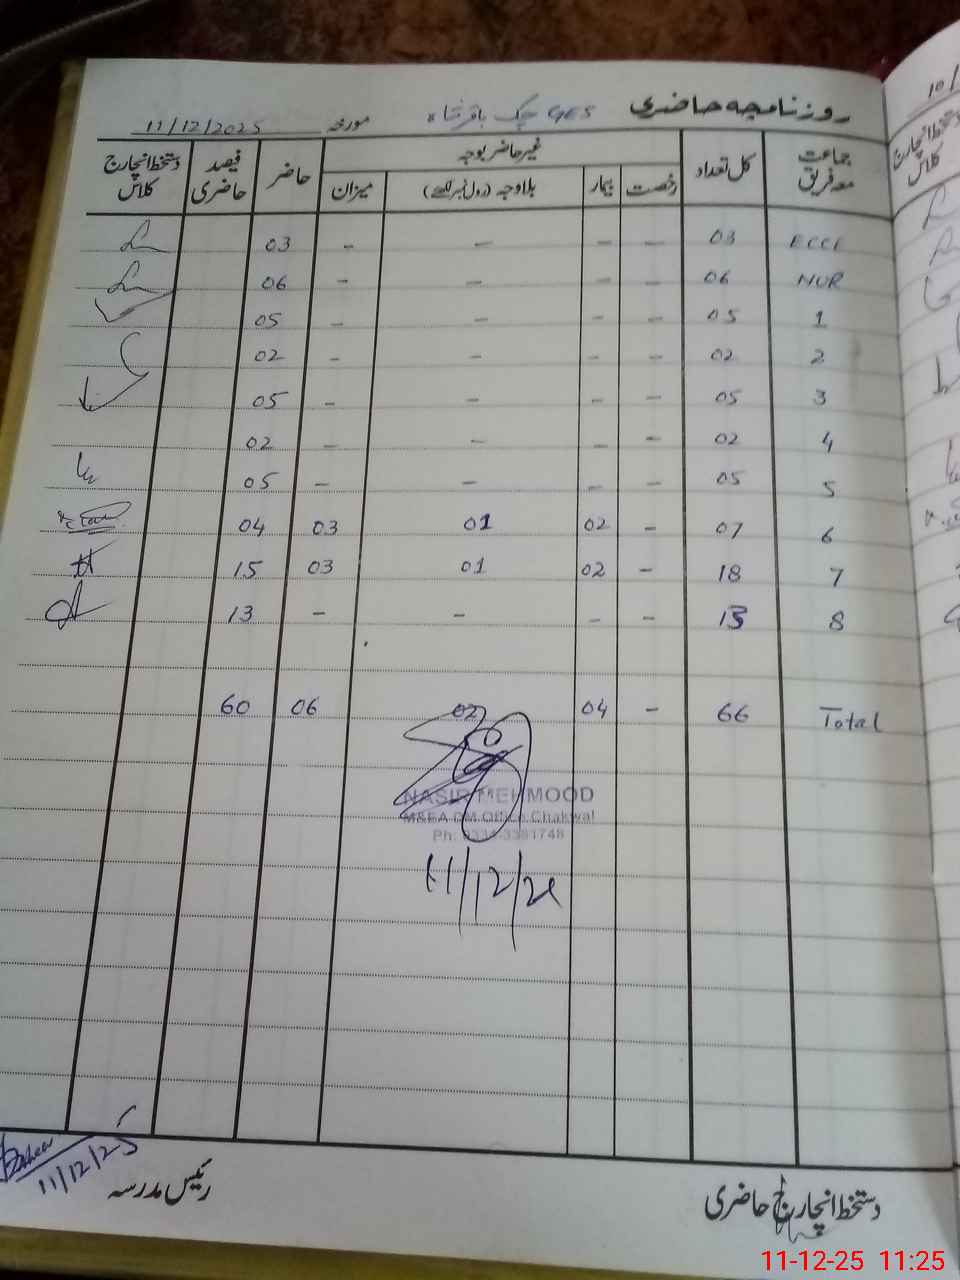 روزنامچہ حاضری GES چک باقر شاہ مورخہ 11/12/2025
جماعت معہ فریق کل تعداد غیر حاضر بوجہ حاضر فیصد حاضری دستخط انچارج کلاس
رخصت بیمار بلاوجہ (رول نمبر لکھیے) میزان
ECCE 03 - - - - 03
NUR 06 - - - - 06
1 05 - - - - 05
2 02 - - - - 02
3 05 - - - - 05
4 02 - - - - 02
5 05 - - - - 05
6 07 - 02 01 03 04
7 18 - 02 01 03 15
8 13 - - - - 13
Total 66 - 04 02 06 60
NASIR MEHMOOD
M&EA DM Office Chakwal
Ph: 0334-3381748
11/12/25
11/12/25
دستخط انچارج حاضری رئیس مدرسہ
10/
دستخط انچارج
کلاس
11-12-25 11:25